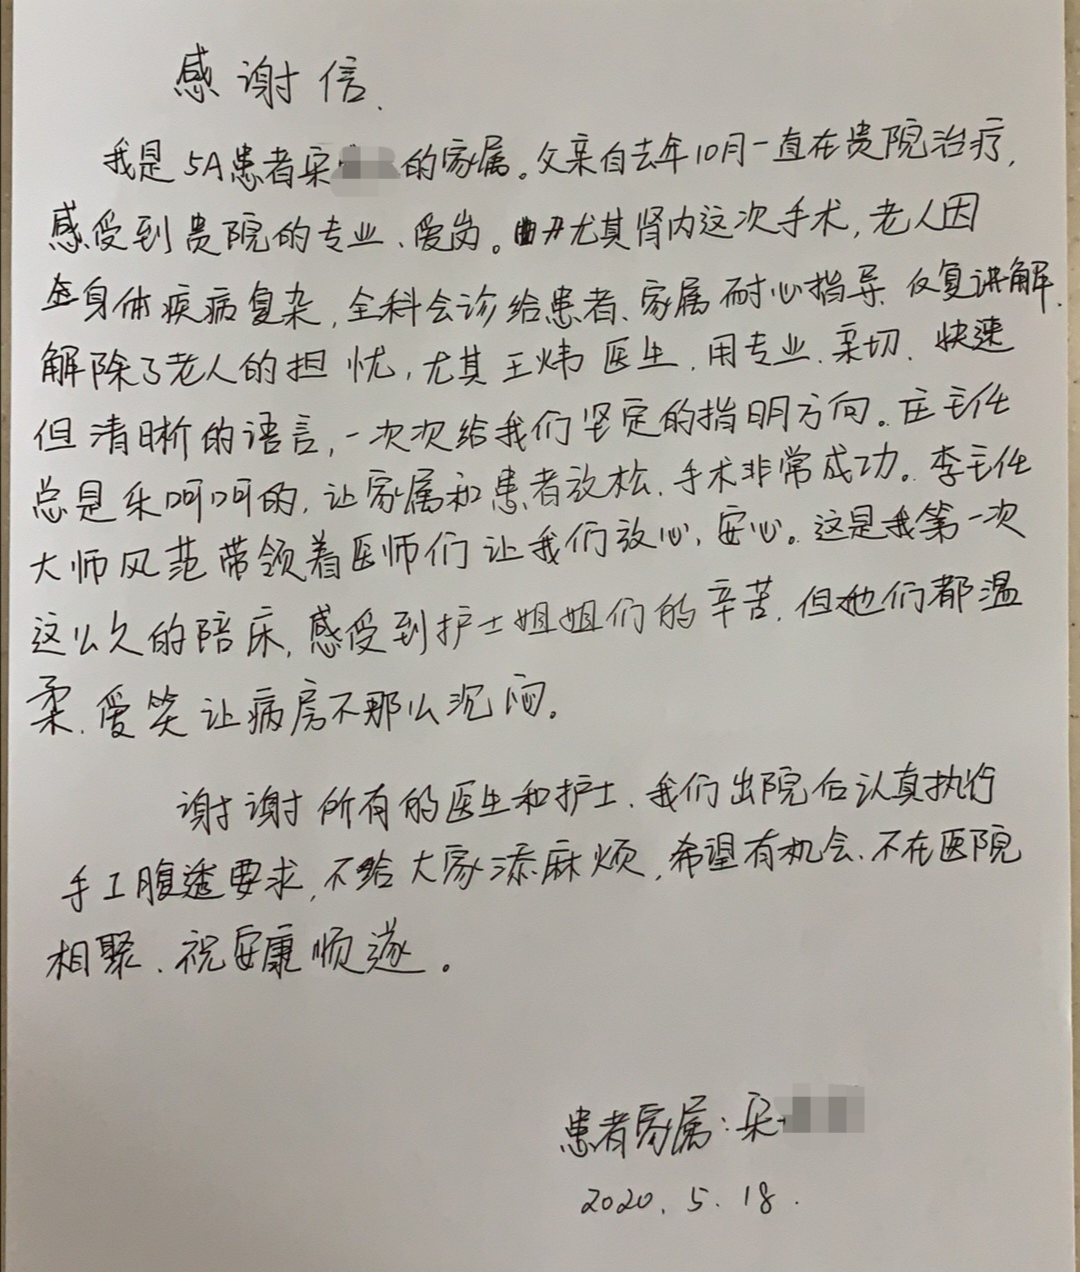 感谢信.
我是5A患者宋 的家属。父亲自去年10月一直在贵院治疗,
感受到贵院的专业、爱岗。尤其肾内这次手术,老人因
身体疾病复杂,全科会诊给患者、家属耐心指导、反复讲解.
解除了老人的担忧,尤其王炜医生.用专业.亲切.快速
但清晰的语言,一次次给我们坚定的指明方向。庄主任
总是乐呵呵的,让家属和患者放松.手术非常成功。李主任
大师风范带领着医师们让我们放心、安心。这是我第一次
这么久的陪床,感受到护士姐姐们的辛苦.但她们都温
柔.爱笑让病房不那么沉闷。
谢谢所有的医生和护士.我们出院后认真执行
手工腹透要求,不给大家添麻烦,希望有机会.不在医院
相聚、祝安康顺遂。
患者家属:宋
2020.5.18.